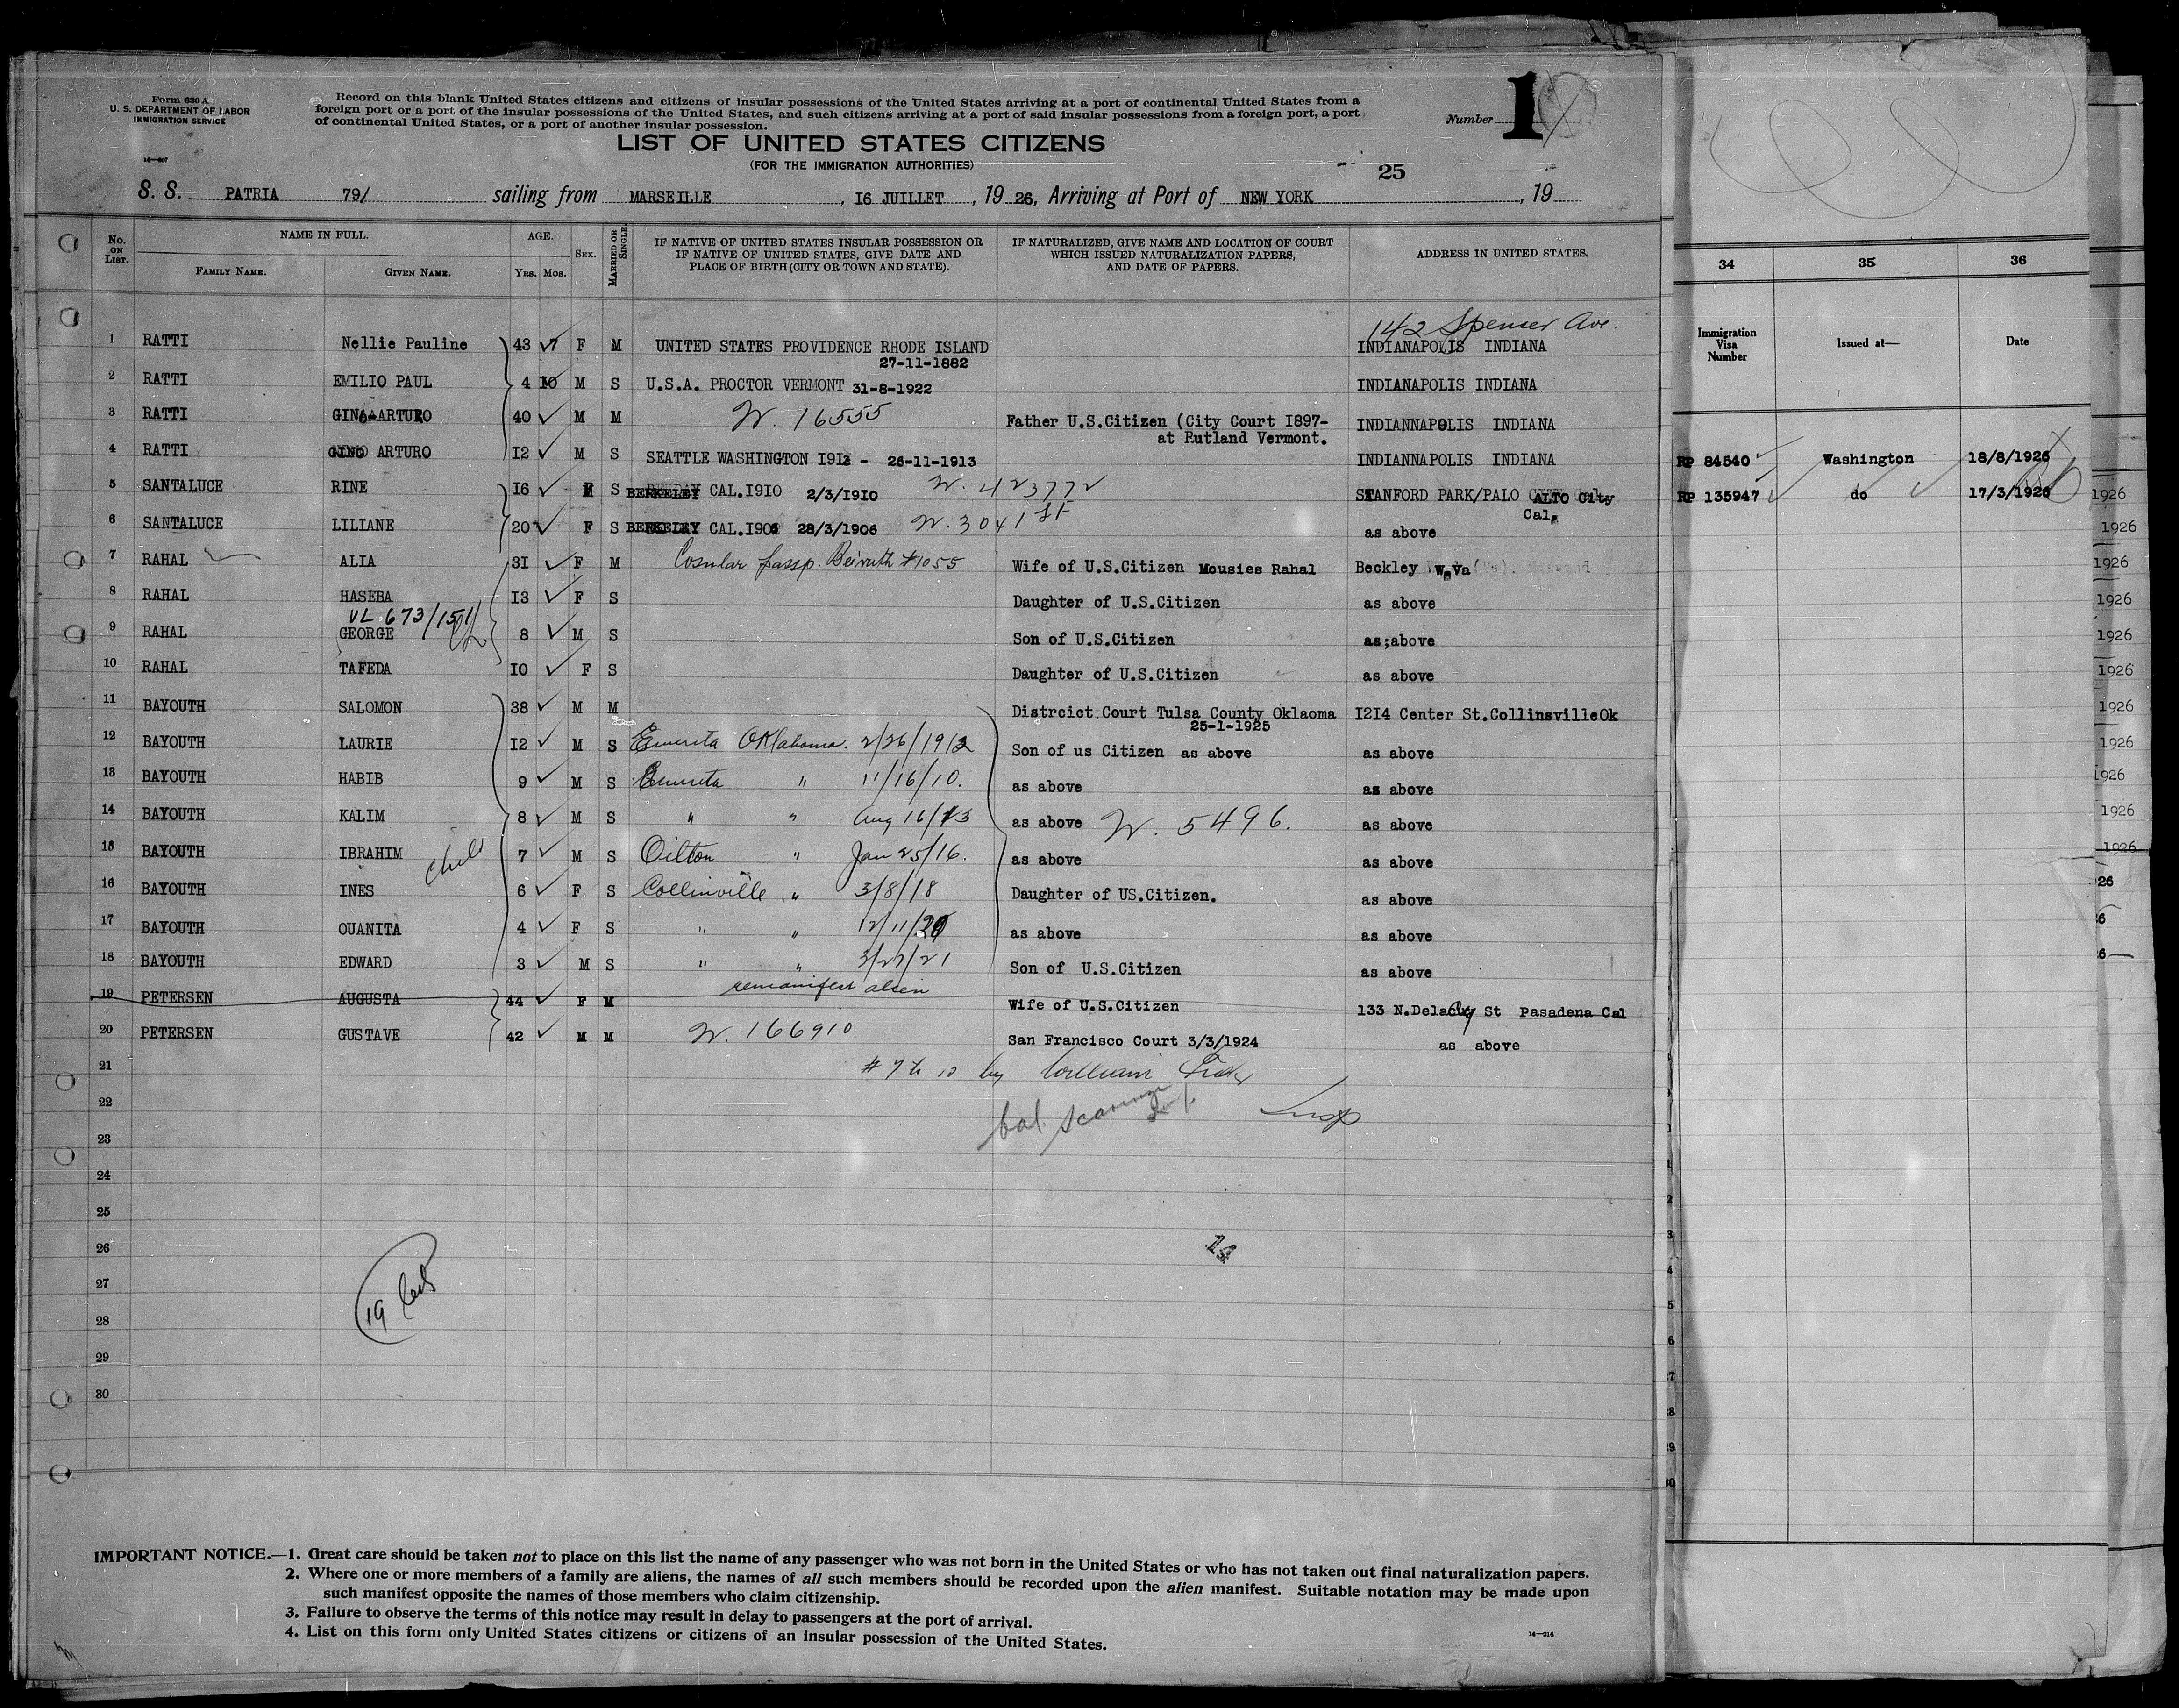 Form 630 A
U. S. DEPARTMENT OF LABOR
IMMIGRATION SERVICE
Record on this blank United States citizens and citizens of insular possessions of the United States arriving at a port of continental United States from a
foreign port or a port of the insular possessions of the United States, and such citizens arriving at a port of said insular possessions from a foreign port, a port
of continental United States, or a port of another insular possession.
Number 1
LIST OF UNITED STATES CITIZENS
(FOR THE IMMIGRATION AUTHORITIES)
25
S. S. PATRIA 79/ sailing from MARSEILLE , I6 JUILLET , 19 26, Arriving at Port of NEW YORK , 19
No. ON LIST. NAME IN FULL. FAMILY NAME. GIVEN NAME. AGE. YRS. MOS. SEX. MARRIED OR SINGLE. IF NATIVE OF UNITED STATES INSULAR POSSESSION OR IF NATIVE OF UNITED STATES, GIVE DATE AND PLACE OF BIRTH (CITY OR TOWN AND STATE). IF NATURALIZED, GIVE NAME AND LOCATION OF COURT WHICH ISSUED NATURALIZATION PAPERS, AND DATE OF PAPERS. ADDRESS IN UNITED STATES.
34 35 36
Immigration Visa Number Issued at— Date
142 Spenser Ave.
1 RATTI Nellie Pauline 43 7 F M UNITED STATES PROVIDENCE RHODE ISLAND INDIANAPOLIS INDIANA
27-11-1882
2 RATTI EMILIO PAUL 4 10 M S U.S.A. PROCTOR VERMONT 31-8-1922 INDIANAPOLIS INDIANA
3 RATTI GINO ARTURO 40 M M W. 16555 Father U.S.Citizen (City Court I897- INDIANNAPOLIS INDIANA
at Rutland Vermont.
4 RATTI GINO ARTURO I2 M S SEATTLE WASHINGTON I913 - 26-11-1913 INDIANNAPOLIS INDIANA RP 84540 Washington 18/8/1926
5 SANTALUCE RINE I6 S BERKELEY CAL.I9IO 2/3/1910 W. 423772 STANFORD PARK/PALO ALTO City RP 135947 do 17/3/1926 1926
Cal.
6 SANTALUCE LILIANE 20 F S BERKELEY CAL.I906 28/3/1906 as above 1926
7 RAHAL ALIA 3I F M Cosular passp. Beiruth #1055 Wife of U.S.Citizen Mousies Rahal Beckley W.Va 1926
8 RAHAL HASEBA I3 F S Daughter of U.S.Citizen as above 1926
VL 673/151
9 RAHAL GEORGE 8 M S Son of U.S.Citizen as;above 1926
10 RAHAL TAFEDA IO F S Daughter of U.S.Citizen as above 1926
11 BAYOUTH SALOMON 38 M M Distrcict Court Tulsa County Oklaoma I2I4 Center St.CollinsvilleOk 1926
25-1-1925
12 BAYOUTH LAURIE I2 M S Emerita Oklahoma. 2/26/1912 Son of us Citizen as above as above 1926
13 BAYOUTH HABIB 9 M S Emerita " 11/16/10. as above as above 1926
14 BAYOUTH KALIM 8 M S " " Aug 16/13 as above W. 5496. as above 1926
15 BAYOUTH IBRAHIM 7 M S Oilton " Jan 25/16. as above as above 1926
16 BAYOUTH INES 6 F S Collinville " 3/8/18 Daughter of US.Citizen. as above 26
17 BAYOUTH OUANITA 4 F S " " 12/11/20 as above as above 6
18 BAYOUTH EDWARD 3 M S " " 3/27/21 Son of U.S.Citizen as above 6
remanifest alien
19 PETERSEN AUGUSTA 44 F M Wife of U.S.Citizen 133 N.Delacy St Pasadena Cal
20 PETERSEN GUSTAVE 42 M M W. 166910 San Francisco Court 3/3/1924 as above
21 # 7 to 10 by William
22 Insp
23
24
25
26 14
27
28 19
29
30
IMPORTANT NOTICE.—1. Great care should be taken not to place on this list the name of any passenger who was not born in the United States or who has not taken out final naturalization papers.
2. Where one or more members of a family are aliens, the names of all such members should be recorded upon the alien manifest. Suitable notation may be made upon
such manifest opposite the names of those members who claim citizenship.
3. Failure to observe the terms of this notice may result in delay to passengers at the port of arrival.
4. List on this form only United States citizens or citizens of an insular possession of the United States.
14—214